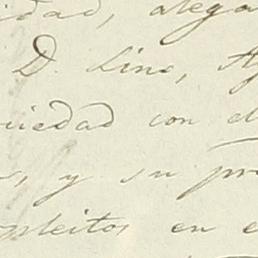 idad, alega
D. Lino, A
uiedad con el
s, y su pro
pleitos en e